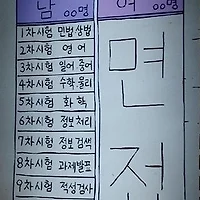 남 00명
여 00명
1차시험 민법상법
2차시험 영어
3차시험 일어 중어
4차시험 수학 물리
5차시험 화학
6차시험 정보처리
7차시험 정보검색
8차시험 과제발표
9차시험 적성검사
면
접